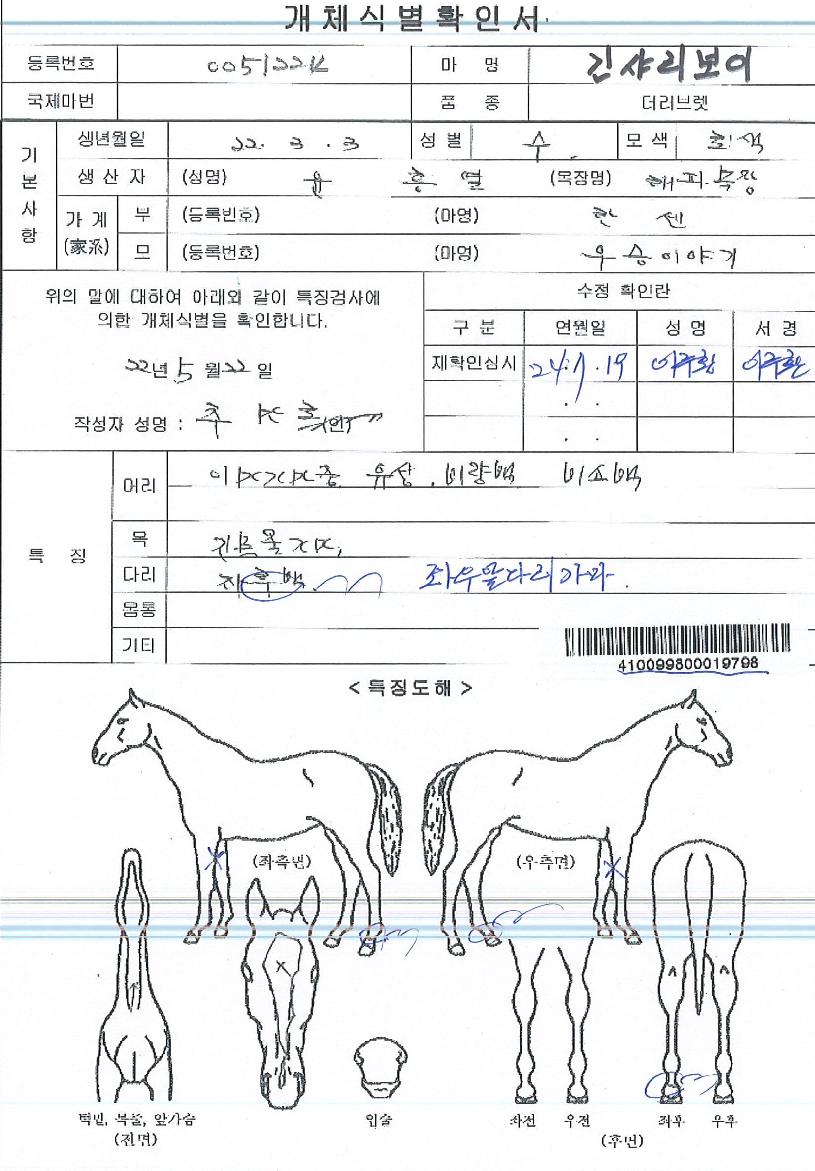 개체식별확인서
등록번호 0051221 마 명 긴샤리보이
국제마번 품 종 더러브렛
기본사항
생년월일 22. 3. 3 성별 수 모색 회색
생산자 (성명) 윤흥열 (목장명) 해피목장
가계(家系) 부 (등록번호) (마명) 한센
모 (등록번호) (마명) 우승이야기
위의 말에 대하여 아래와 같이 특징검사에
의한 개체식별을 확인합니다.
22년 5월 22일
작성자 성명 :
수정 확인란
구분 연월일 성명 서명
재확인심사 24.1.19
특 징
머리 유성. 비량백 비소백
목
다리 좌후백 좌우앞다리가마.
몸통
기타
410099800019798
<특징도해>
(좌측면) (우측면)
턱밑, 목줄, 앞가슴
(전면)
입술
좌전 우전 좌후 우후
(후면)